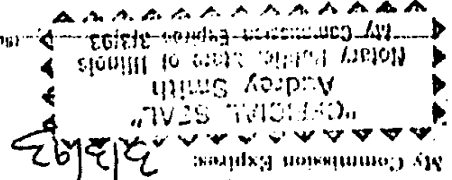 My Commission Expires: 3/3/93
"OFFICIAL SEAL"
Audrey Smith
Notary Public, State of Illinois
My Commission Expires 3/3/93